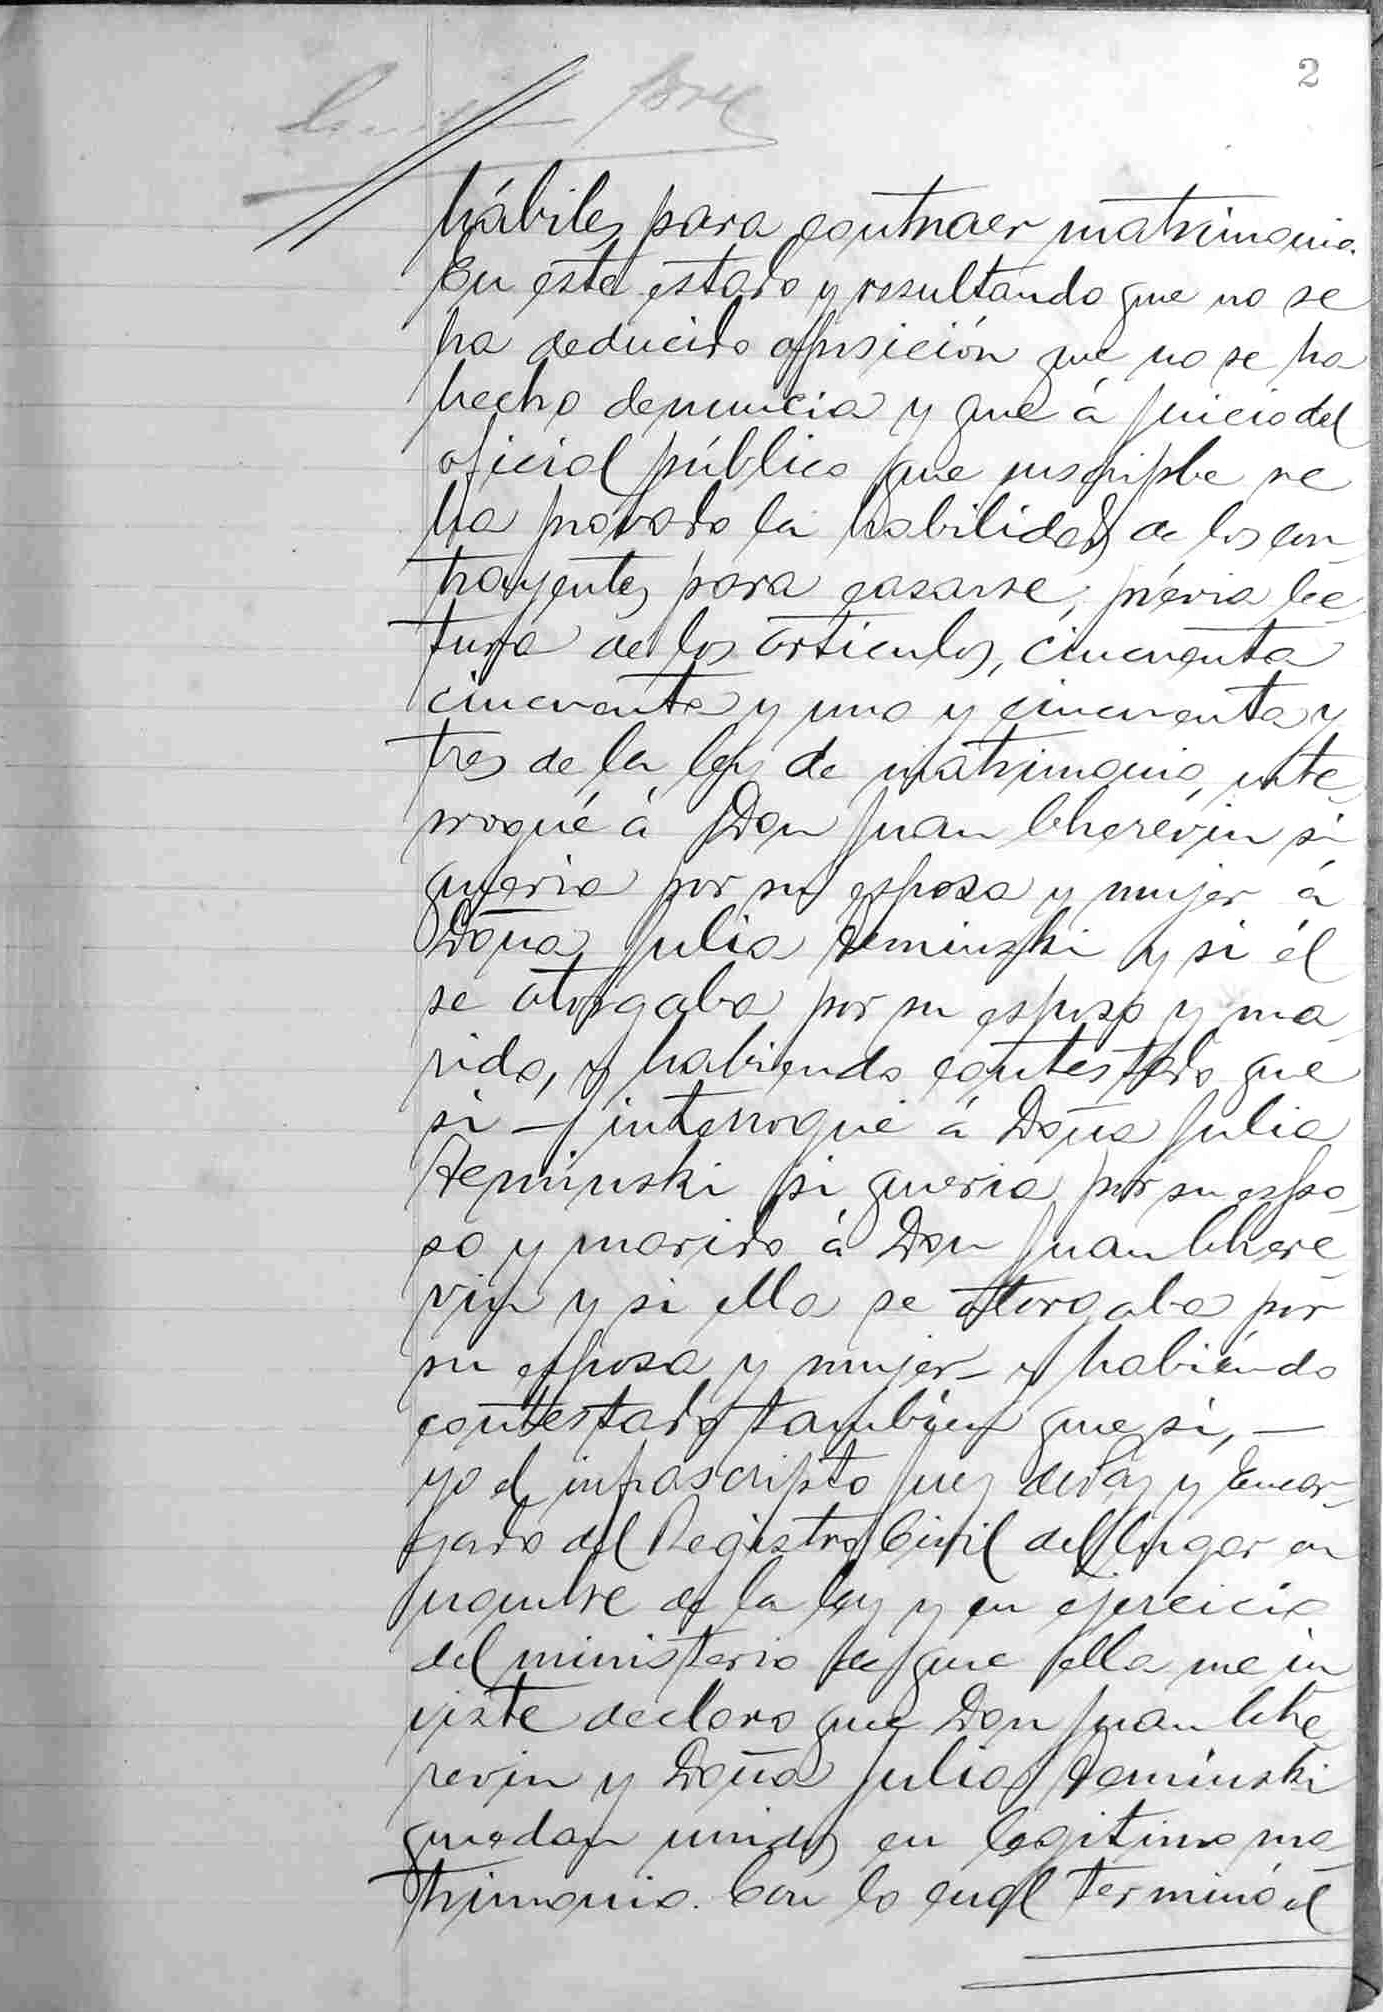 2
hábiles para contraer matrimonio.
En este estado y resultando que no se
ha deducido oposición que no se ha
hecho denuncia y que á juicio del
oficial público que suscribe se
ha provado la habilidad de los con
trayentes para casarse, prévia lec
tura de los artículos, cincuenta
cincuenta y uno y cincuenta y
tres de la ley de matrimonio, inte
rrogué á Don Juan Cherévin si
queria por su esposa y mujer á
Doña Julia Seminski y si él
se otorgaba por su esposo y ma
rido, y habiendo contestado que
si — interrogué á Doña Julia
Seminski si queria por su espo
so y marido á Don Juan Chere
vin y si ella se otorgaba por
su esposa y mujer — y habiendo
contestado tambien que si, —
yo el infrascripto Juez de Paz y Encar-
gado del Registro Civil del lugar en
nombre de la ley y en ejercicio
del ministerio de que ella me in
viste declaro que Don Juan Che
revin y Doña Julia Seminski
quedan unidos en legitimo ma
trimonio. Con lo cual terminó el